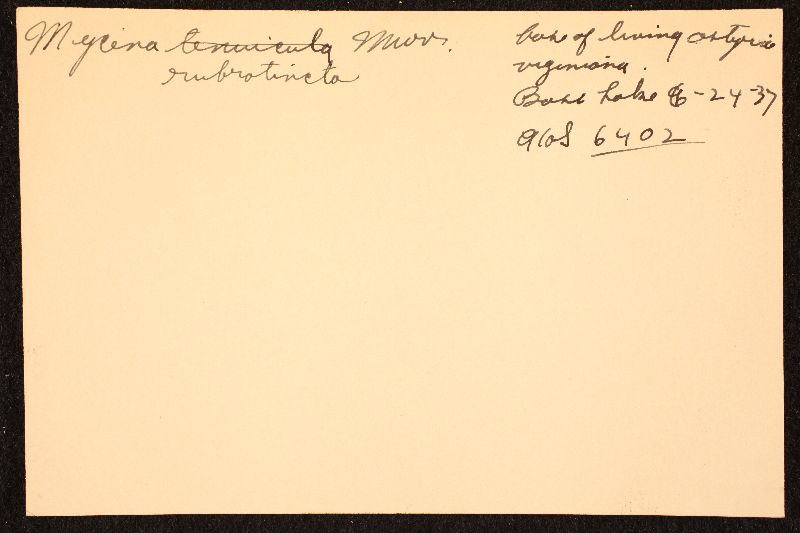 Mycena tenuicula Murr.
rubrotincta
base of living ostrya
virginiana.
Bass Lake 6-24-37
AHS 6402